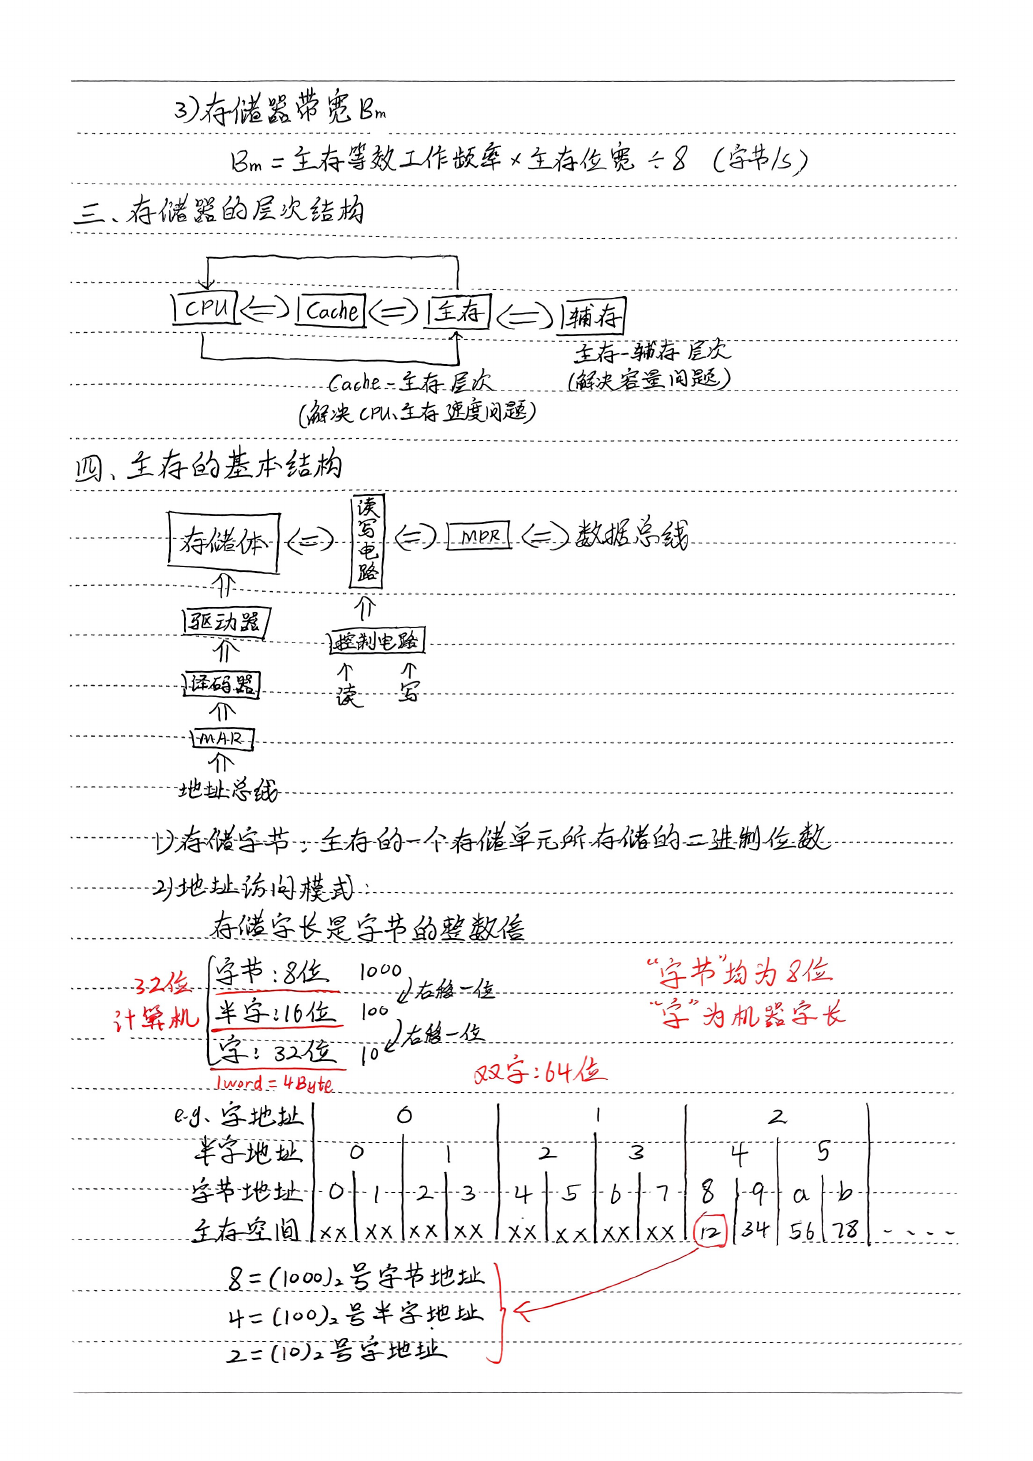 3)存储器带宽Bm
Bm=主存等效工作频率×主存位宽÷8 (字节/s)
三、存储器的层次结构
CPU Cache 主存 辅存
主存-辅存 层次
(解决容量问题)
Cache-主存 层次
(解决CPU、主存 速度问题)
四、主存的基本结构
存储体 读写电路 MDR 数据总线
驱动器 控制电路
译码器 读 写
MAR
地址总线
1)存储字节:主存的一个存储单元所存储的二进制位数
2)地址访问模式:
存储字长是字节的整数倍
32位计算机
字节:8位 1000
右移一位
半字:16位 100
右移一位
字:32位 10
1word=4Byte
“字节”均为8位
“字”为机器字长
双字:64位
e.g. 字地址 0 1 2
半字地址 0 1 2 3 4 5
字节地址 0 1 2 3 4 5 6 7 8 9 a b
主存空间 xx xx xx xx xx xx xx xx 12 34 56 78 ----
8=(1000)₂号字节地址
4=(100)₂号半字地址
2=(10)₂号字地址